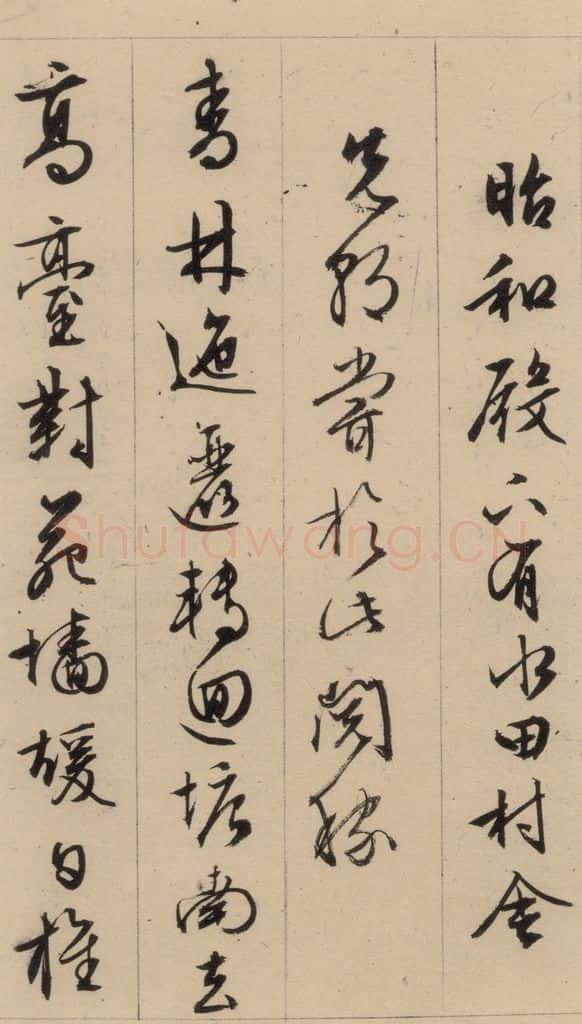 昭和殿下有水田村舍
先朝嘗於此閱稼
青林迤邐轉迴塘南去
高臺對苑墻煖日旌
Shufawang.CN